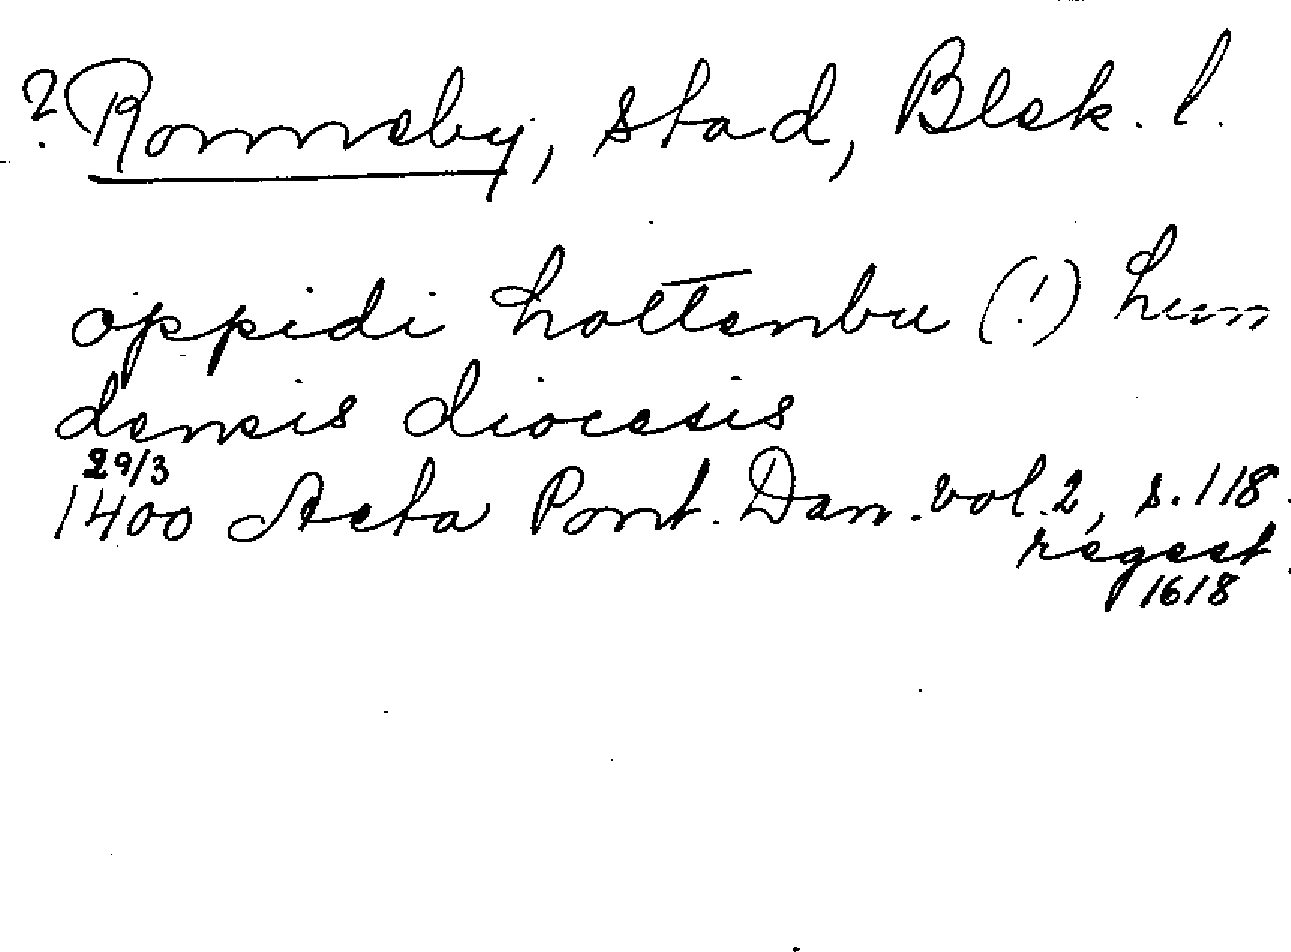 ? Ronneby, stad, Blek. l.
oppidi holtenbu (!) Lun
densis diocesis
29/3
1400 Acta Pont. Dan. vol. 2, s. 118.
regest
1618